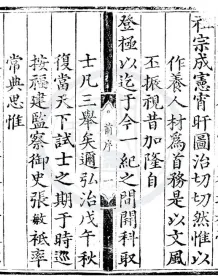 祖宗成憲宵旰圖治切切然惟以
作養人材爲首務是以文風
丕振視昔加隆自
登極以迄于今一紀之間開科取
前序
士凡三舉矣邇弘治戊午秋
復當天下試士之期于時巡
按福建監察御史張敏祗率
常典思惟